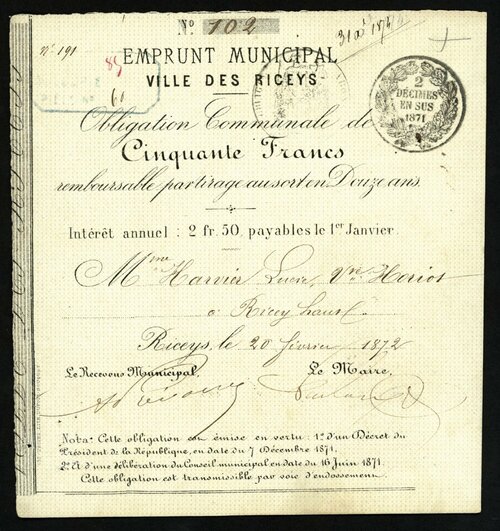 No 102
31 a
no 191
85
61
EMPRUNT MUNICIPAL
VILLE DES RICEYS
2
DÉCIMES
EN SUS
1871
Obligation Communale de
Cinquante Francs
remboursable par tirage au sort en Douze ans.
Intérêt annuel : 2 fr. 50, payables le 1er Janvier.
Mme Harvier Vve Heriot
à Ricey haut
Riceys, le 20 février 1872
Le Receveur Municipal, Le Maire,
Nota. Cette obligation est émise en vertu : 1o d'un Décret du
Président de la République, en date du 7 Décembre 1871.
2o Et d'une délibération du Conseil municipal en date du 16 Juin 1871.
Cette obligation est transmissible par voie d'endossement.